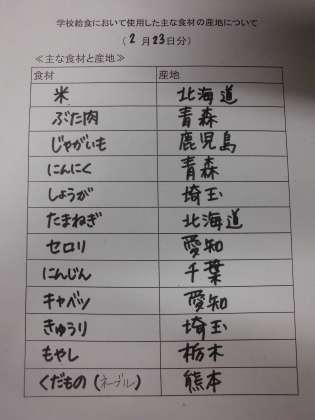 学校給食において使用した主な食材の産地について
(2月23日分)
≪主な食材と産地≫
食材 産地
米 北海道
ぶた肉 青森
じゃがいも 鹿児島
にんにく 青森
しょうが 埼玉
たまねぎ 北海道
セロリ 愛知
にんじん 千葉
キャベツ 愛知
きゅうり 埼玉
もやし 栃木
くだもの(ネーブル) 熊本